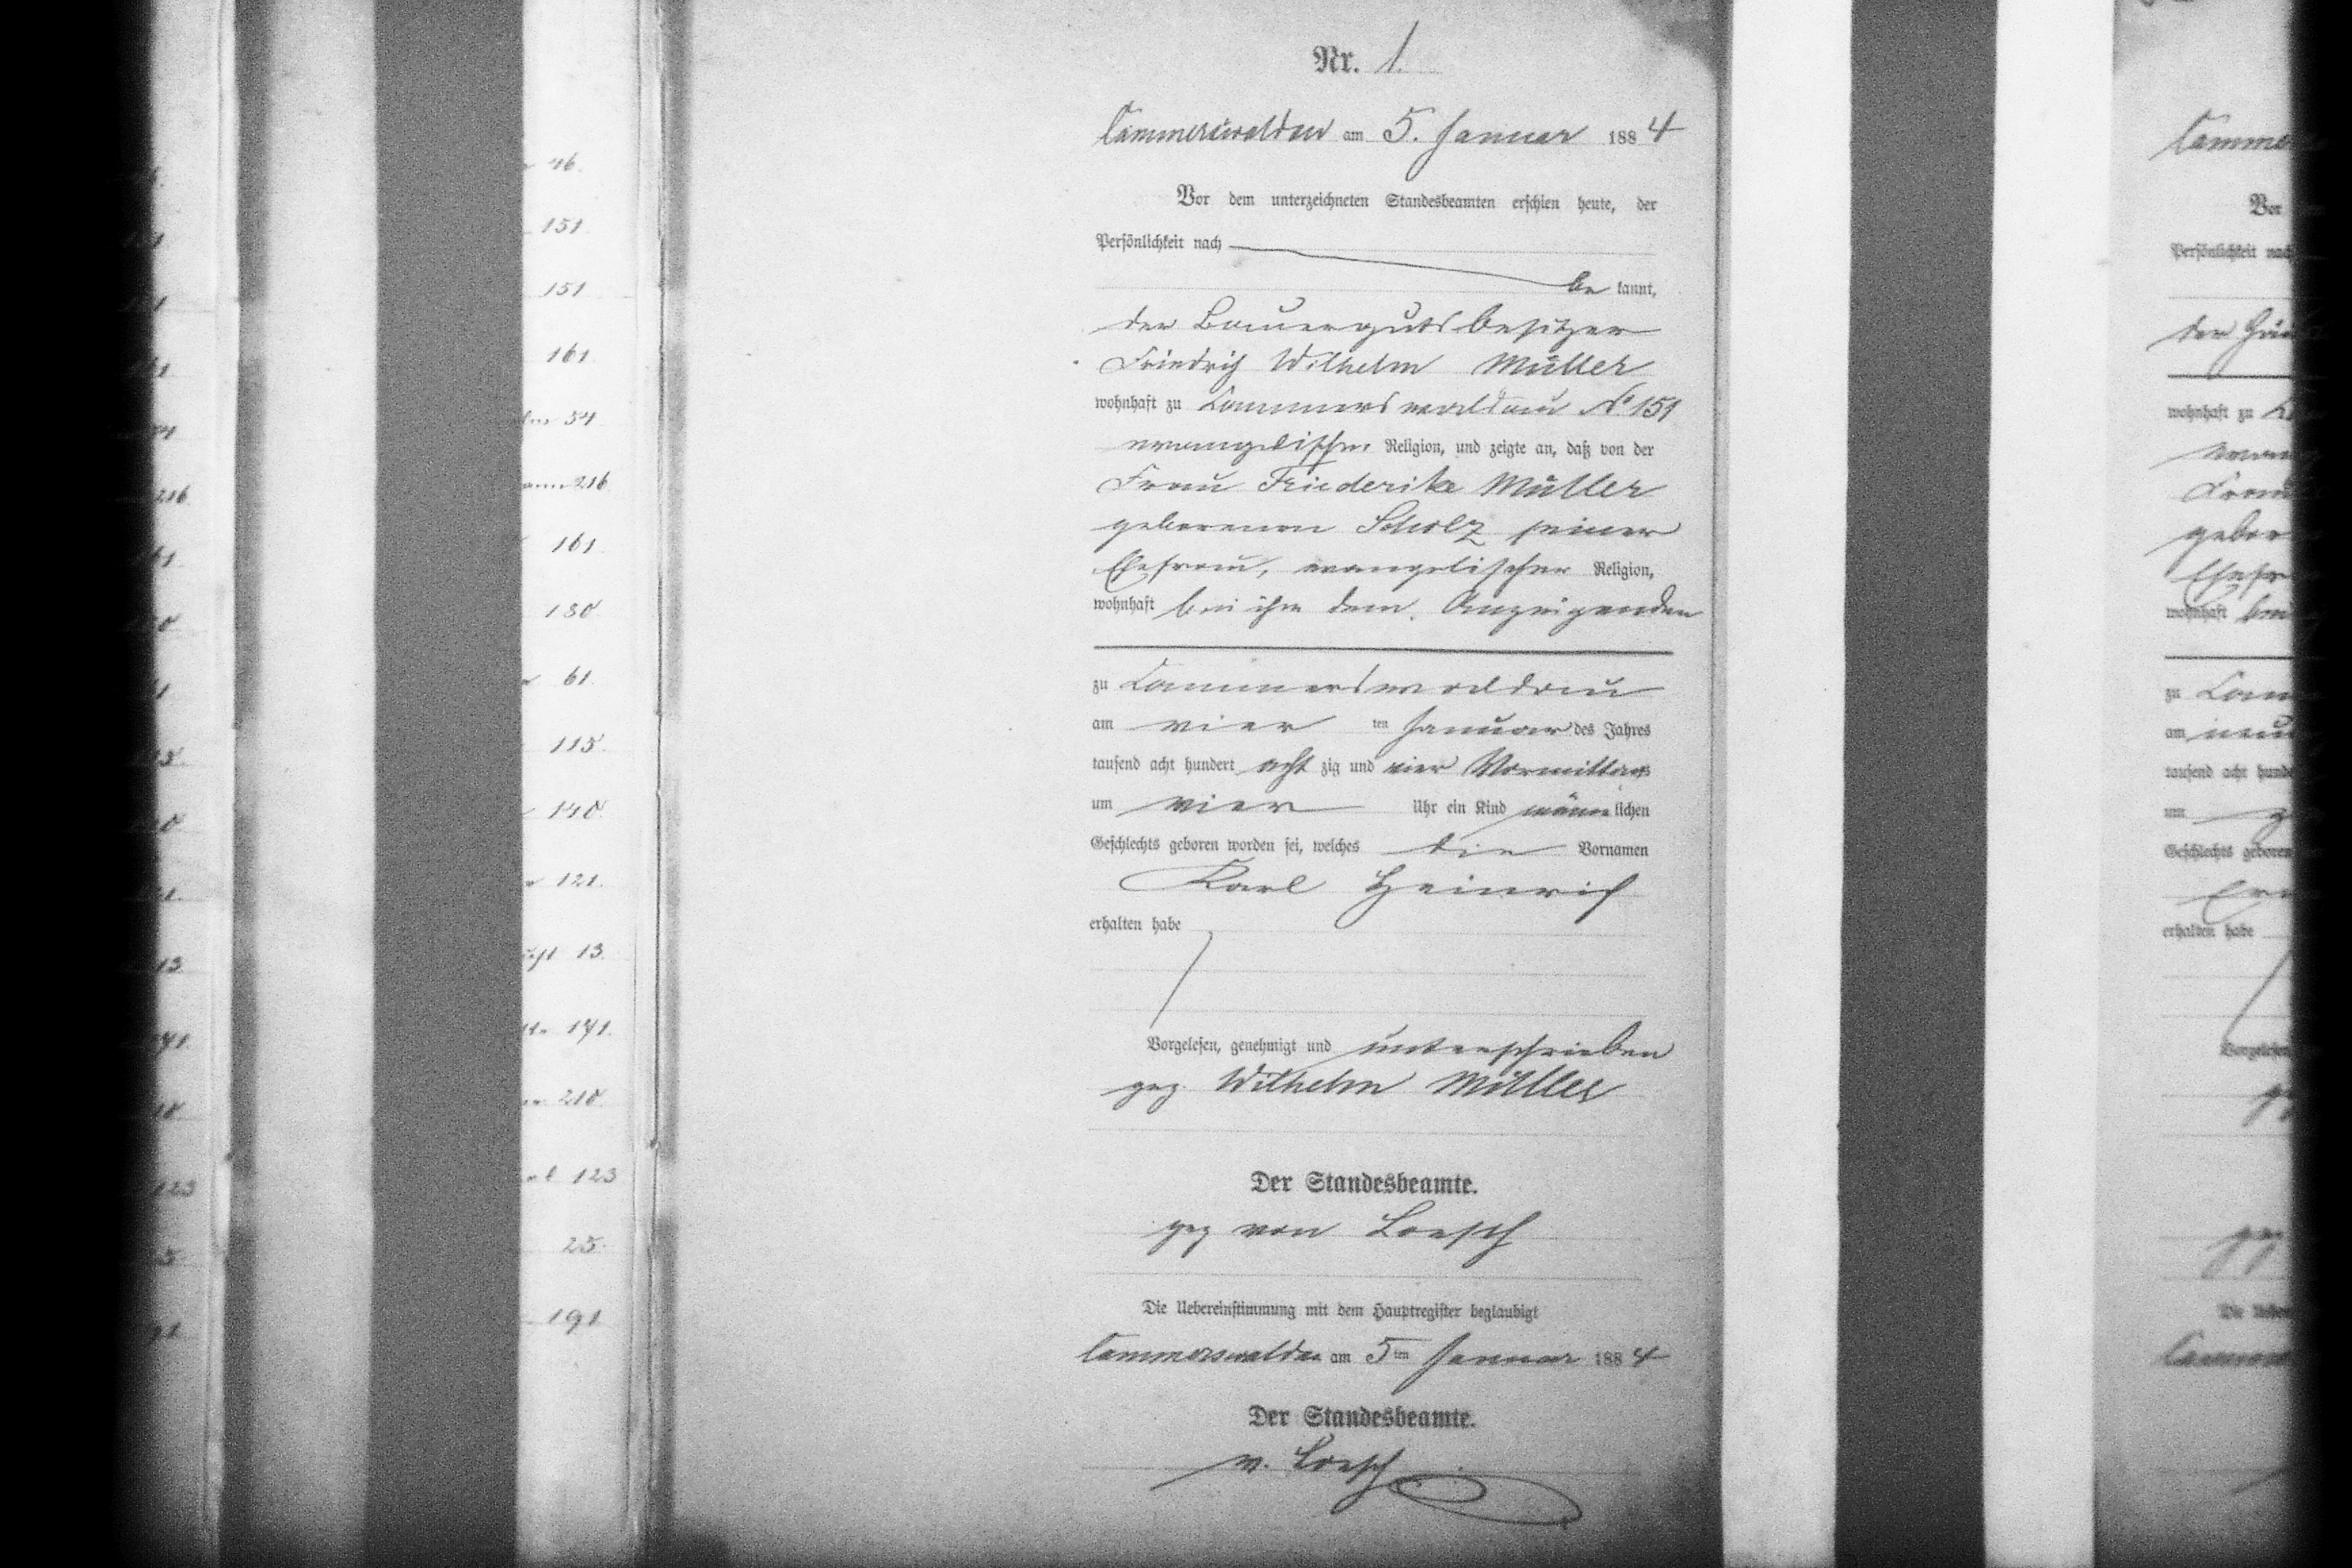 46.
151.
151
161.
54
216.
161.
180.
61.
115.
140.
121.
13.
171.
210.
123
25.
191
Nr. 1.
Cammerswaldau am 5. Januar 1884
Vor dem unterzeichneten Standesbeamten erschien heute, der
Persönlichkeit nach
be kannt,
der Bauergutsbesitzer
Friedrich Wilhelm Müller
wohnhaft zu Cammerswaldau No 151
evangelischer Religion, und zeigte an, daß von der
Frau Friederike Müller
geborenen Scholz seiner
Ehefrau, evangelischer Religion,
wohnhaft bei ihm dem Anzeigenden
zu Cammerswaldau
am vier ten Januar des Jahres
tausend acht hundert acht zig und vier Vormittags
um vier Uhr ein Kind männlichen
Geschlechts geboren worden sei, welches die Vornamen
Karl Heinrich
erhalten habe
Vorgelesen, genehmigt und unterschrieben
gez Wilhelm Müller
Der Standesbeamte.
gez von Loesch
Die Uebereinstimmung mit dem Hauptregister beglaubigt
Cammerswaldau am 5ten Januar 1884
Der Standesbeamte.
v. Loesch
Vor
Persönlichkeit nach
der
wohnhaft zu
Frau
gebor
wohnhaft
zu Cam
am neun
tausend acht hunde
um
Geschlechts geboren
erhalten habe
Vorgelesen
gez
Die Ueber